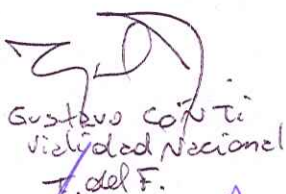 Gustavo Conti
Vialidad Nacional
T. del F.